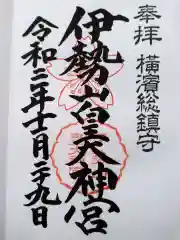 奉拝
横濱総鎮守
伊勢山皇大神宮
令和二年十二月二十九日